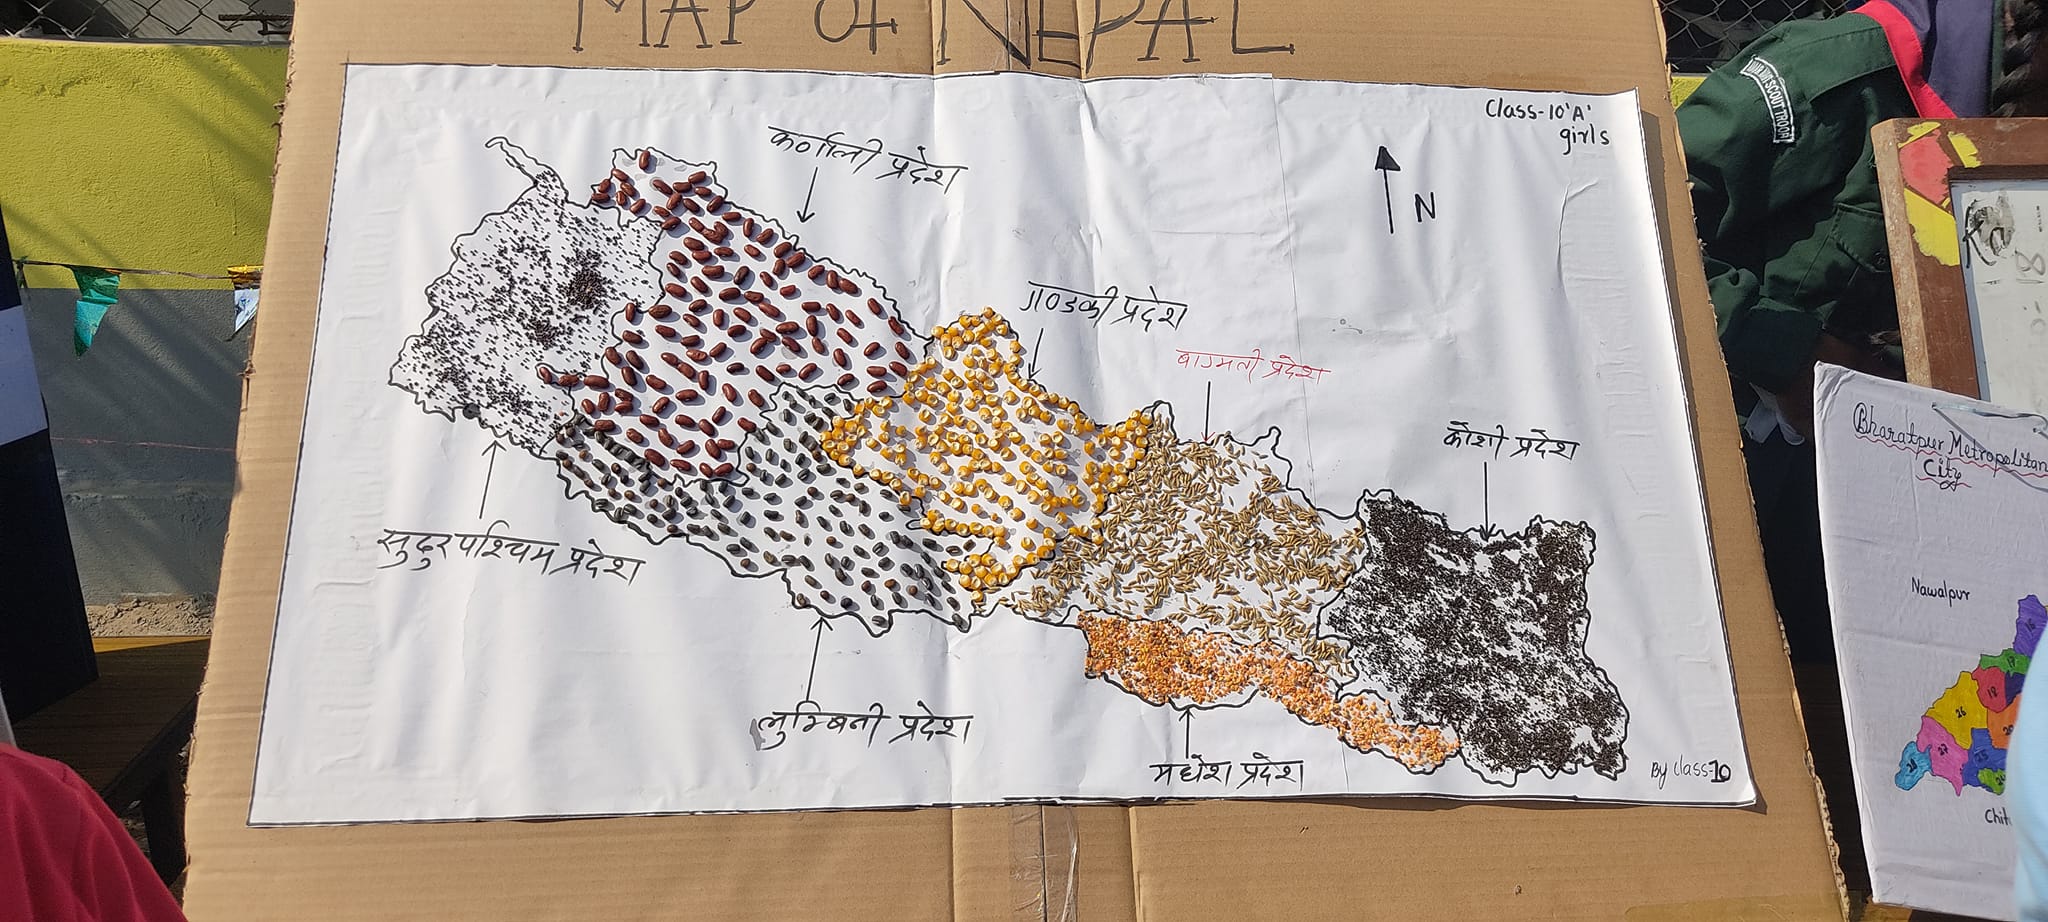 MAP OF NEPAL
Class-10'A'
girls
कर्णाली प्रदेश
N
गण्डकी प्रदेश
बागमती प्रदेश
कोशी प्रदेश
सुदुरपश्चिम प्रदेश
लुम्बिनी प्रदेश
मधेश प्रदेश
By class-10
SCOUT TROOP
Bharatpur Metropolitan
City
Nawalpur
16
17
18
26
27